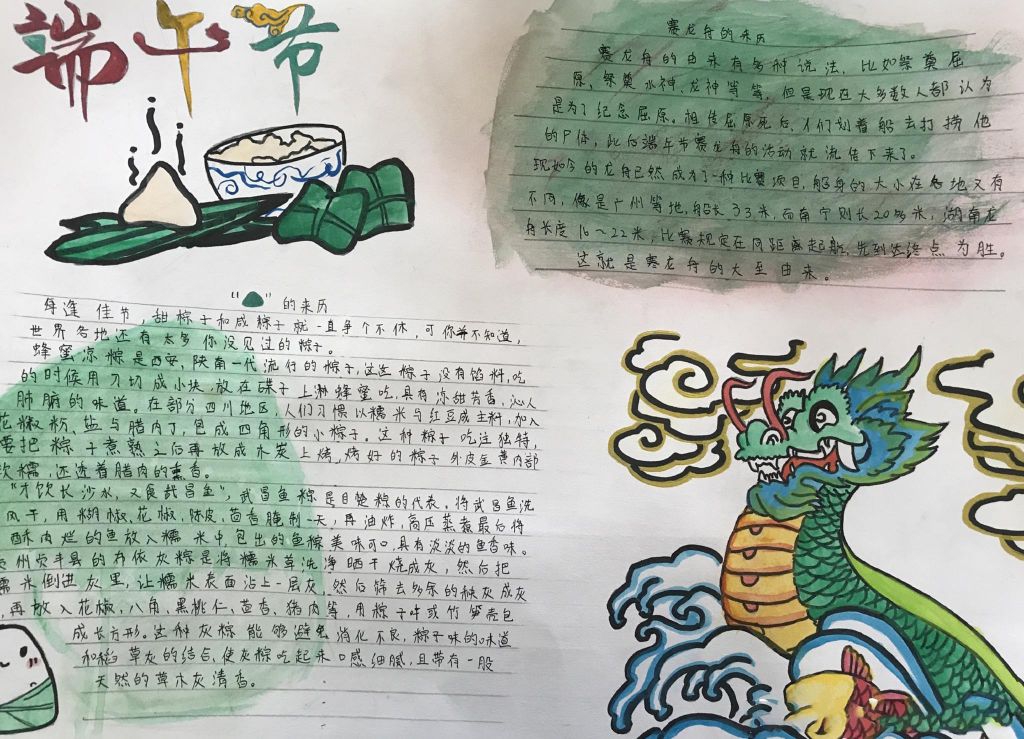 端午节
赛龙舟的来历
赛龙舟的由来有多种说法，比如祭奠屈
原、祭奠水神、龙神等等，但是现在大多数人都认为
是为了纪念屈原。相传屈原死后，人们划着船去打捞他
的尸体，此后端午节赛龙舟的活动就流传下来了。
现如今的龙舟已然成为了一种比赛项目，船身的大小在各地又有
不同，像是广州等地，船长33米，而南宁则长20多米，湖南龙
舟长度16～22米，比赛规定在同距离起船，先到达终点为胜。
这就是赛龙舟的大至由来。
“ ”的来历
每逢佳节，甜粽子和咸粽子就一直争个不休，可你并不知道，
世界各地还有太多你没见过的粽子。
蜂蜜凉粽是西安，陕南一代流行的粽子，这这粽子没有馅料，吃
的时候用刀切成小块，放在碟子上淋蜂蜜吃，具有凉甜芳香，沁人
肺腑的味道。在部分四川地区，人们习惯以糯米与红豆成主料，加入
花椒粉，盐与腊肉丁，包成四角形的小粽子。这种粽子吃法独特，
要把粽子煮熟之后再放成木炭上烤，烤好的粽子外皮金黄内部
软糯，还透着腊肉的熏香。
“才饮长沙水，又食武昌鱼”，武昌鱼粽是目鱼粽的代表。将武昌鱼洗
风干，用胡椒，花椒，陈皮，茴香腌制一天，再油炸，高压蒸煮最后将
酥肉烂的鱼放入糯米中，包出的鱼粽美味可口，具有淡淡的鱼香味。
州贞丰县的布依灰粽是将糯米草洗净晒干烧成灰，然后把
糯米倒进灰里，让糯米表面沾上一层灰，然后筛去多余的秧灰成灰
，再放入花椒，八角，黑桃仁，茴香，猪肉等，用粽子叶或竹笋壳包
成长方形。这种灰粽能够避免消化不良，粽子味的味道
和稻草灰的结合，使灰粽吃起来口感细腻，且带有一股
天然的草木灰清香。